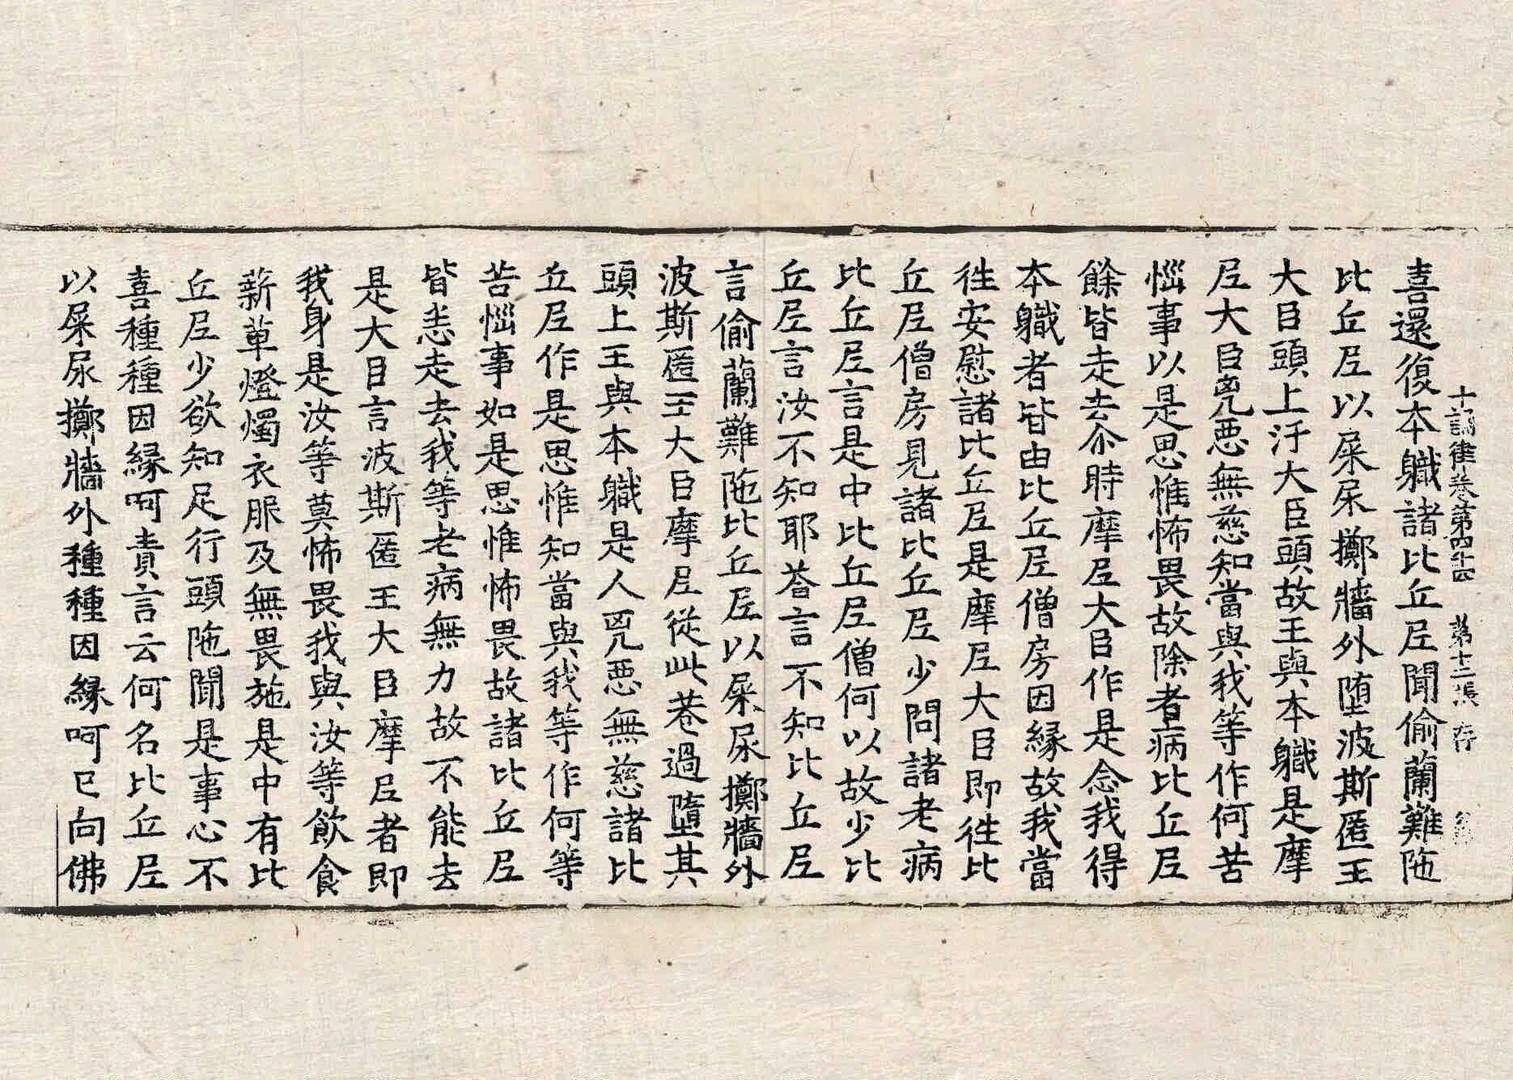 十誦律卷第四十四 第十二張 存
喜還復本職諸比丘尼聞偷蘭難陁
比丘尼以屎尿擲牆外堕波斯匿王
大臣頭上汙大臣頭故王與本職是摩
尼大臣兇惡無慈知當與我等作何苦
惱事以是思惟怖畏故除者病比丘尼
餘皆走去尒時摩尼大臣作是念我得
本職者皆由比丘尼僧房因緣故我當
往安慰諸比丘尼是摩尼大臣即往比
丘尼僧房見諸比丘尼少問諸老病
比丘尼言是中比丘尼僧何以故少比
丘尼言汝不知耶荅言不知比丘尼
言偷蘭難陁比丘尼以屎尿擲牆外
波斯匿王大臣摩尼從此巷過墮其
頭上王與本職是人兇惡無慈諸比
丘尼作是思惟知當與我等作何等
苦惱事如是思惟怖畏故諸比丘尼
皆悉走去我等老病無力故不能去
是大臣言波斯匿王大臣摩尼者即
我身是汝等莫怖畏我與汝等飲食
薪草燈燭衣服及無畏施是中有比
丘尼少欲知足行頭陁聞是事心不
喜種種因緣呵責言云何名比丘尼
以屎尿擲牆外種種因緣呵已向佛